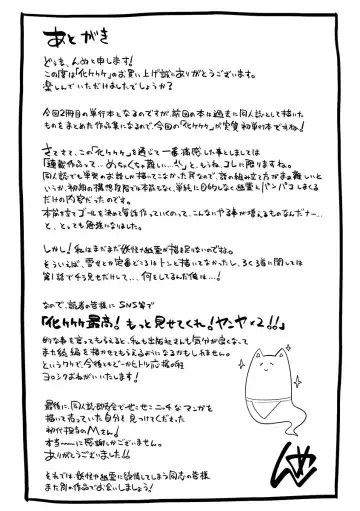 あとがき
どうも、んぬと申します!
この度は「化ケケケ」のお買い上げ誠にありがとうございます。
楽しんでいただけましたでしょうか?
今回2冊目の単行本となるのですが、前回の本は過去に同人誌として描いた
ものをまとめた作品集になるので、今回の「化ケケケ」が実質初単行本ですね!
さてさて、この「化ケケケ」を通じて一番痛感した事としましては
「連載作品って…めちゃくちゃ難しい…!!」と、もうね、コレに限りますね。
同人誌でも単発のお話しか描いてこなかった民なので、話の組み立て方がまぁ難しいと
いうか、初期の構想段階では本筋もなく、単純に目的もなく幽霊とパンパコしまくる
だけの内容だったのです。
本筋を立てゴールを決めて毎話作っていくのって、こんなにやる事が増えるものなんだナー…
と、とっても勉強になりました。
しかし!私はまだまだ妖怪や幽霊が描き足りないのですね。
そういえば、雪女とか定番どころはトンと描いてなかったし、ろくろ首に関しては
第1話でチラ見せだけして…、何をしてるんだ俺は…!
なので、読者の皆様に SNS等で
「化ケケケ最高!もっと見せてくれ!ヤンヤ×2!!」
的な事を言ってもらえると、私も出版社さんも気分が良くなって
また続編を描かせてもらえるようになるかもしれません。
というワケで、今後ともどーかヒトツ応援の程
ヨロシクおねがいいたします!
最後に、同人誌即売会でせこせこニッチなマンガを
描いて売っていた自分を見つけてくださった
初代担当のMさん!
本当〜〜に感謝しかございません。
ありがとうございました!!
それでは、妖怪や幽霊に欲情してしまう同志の皆様
また別の作品でお会いしましょう!